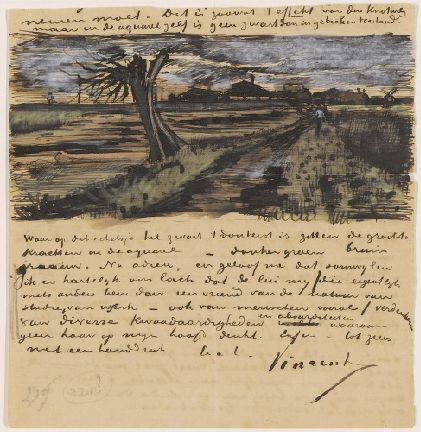 nemen moet. Dit is zoowat 't effekt van den Knotwilg
maar in de aquarel zelf is geen zwart dan in gebroken toestand
Waar op dit schetsje het zwart 't donkerst is zitten de grootste
Krachten in de aquarel – donkergroen bruin
graauw. Nu adieu, en geloof me dat somwijlen
ik er hartelijk om lach dat de lui mij (die eigenlijk
niets anders ben dan een vriend van de natuur van
studie van werk – ook van menschen vooral) verdenken
van diverse Kwaadaardigheden en absurditeiten waaraan
geen haar op mijn hoofd denkt. Enfin – tot ziens
met een handdruk
Vincent